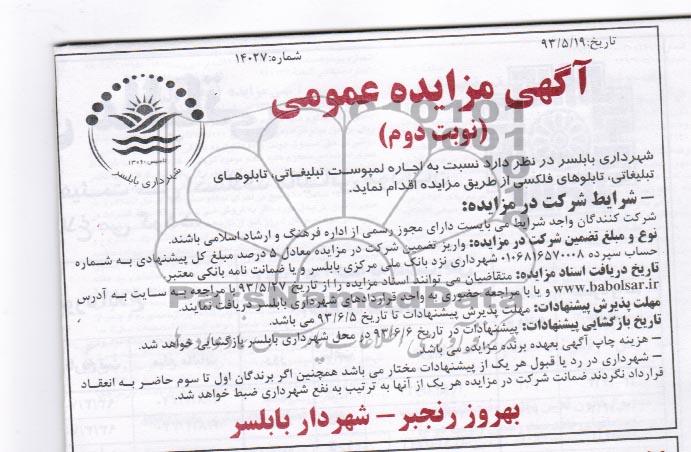 تاریخ:۹۳/۵/۱۹
شماره:۱۴۰۲۷
آگهی مزایده عمومی
(نوبت دوم)
تاسیس ۱۳۰۶
شهرداری بابلسر
شهرداری بابلسر در نظر دارد نسبت به اجاره لمپوست تبلیغاتی، تابلوهای
تبلیغاتی، تابلوهای فلکسی از طریق مزایده اقدام نماید.
– شرایط شرکت در مزایده:
شرکت کنندگان واجد شرایط می بایست دارای مجوز رسمی از اداره فرهنگ و ارشاد اسلامی باشند.
نوع و مبلغ تضمین شرکت در مزایده: واریز تضمین شرکت در مزایده معادل ۵ درصد مبلغ کل پیشنهادی به شماره
حساب سپرده ۰۱۰۶۸۱۶۵۷۰۰۰۸ شهرداری نزد بانک ملی مرکزی بابلسر و یا ضمانت نامه بانکی معتبر.
تاریخ دریافت اسناد مزایده: متقاضیان می توانند اسناد مزایده را از تاریخ ۹۳/۵/۲۷ با مراجعه به سایت به آدرس
www.babolsar.ir و یا با مراجعه حضوری به واحد قراردادهای شهرداری بابلسر دریافت نمایند.
مهلت پذیرش پیشنهادات: مهلت پذیرش پیشنهادات تا تاریخ ۹۳/۶/۵ می باشد.
تاریخ بازگشایی پیشنهادات: پیشنهادات در تاریخ ۹۳/۶/۶ در محل شهرداری بابلسر بازگشایی خواهد شد.
– هزینه چاپ آگهی بعهده برنده مزایده می باشد.
– شهرداری در رد یا قبول هر یک از پیشنهادات مختار می باشد همچنین اگر برندگان اول تا سوم حاضر به انعقاد
قرارداد نگردند ضمانت شرکت در مزایده هر یک از آنها به ترتیب به نفع شهرداری ضبط خواهد شد.
بهروز رنجبر – شهردار بابلسر